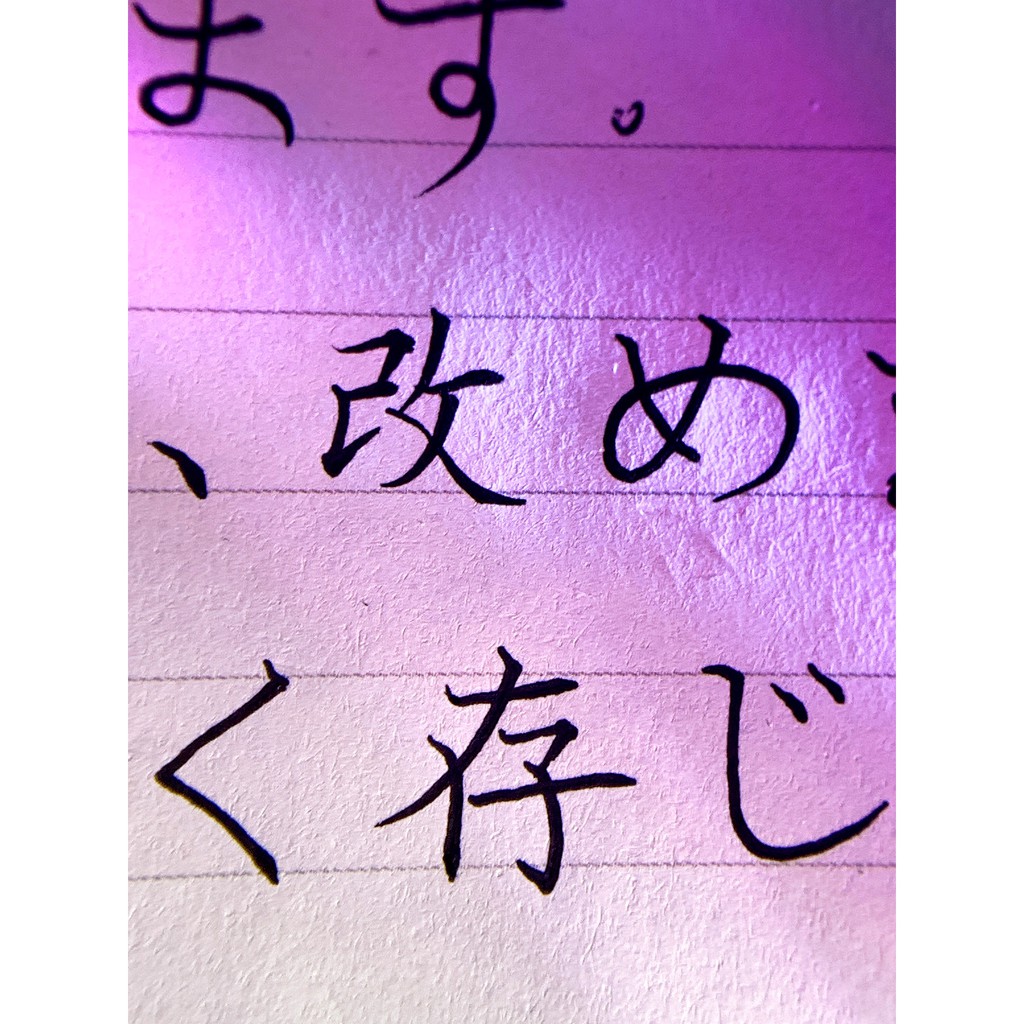 ます。
、改め
く存じ